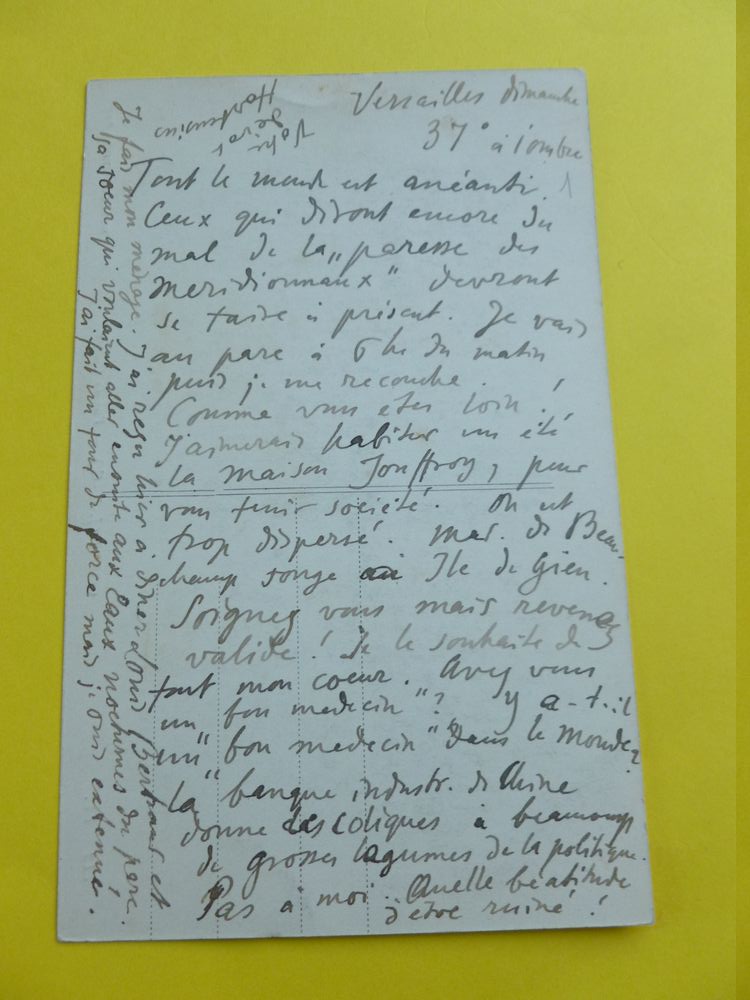 Versailles dimanche
37° à l'ombre
Tout le monde est anéanti.
Ceux qui diront encore du
mal de la „paresse des
meridionnaux" devront
se taire à présent. Je vais
au parc à 6 h du matin
puis je me recouche.
Comme vous etes loin !
J'aimerais habiter un été
la maison Jouffroy, pour
vous tenir société. On est
trop dispersé. Mad. de Beau-
champ songe au Ile de Gien.
Soignez vous mais revenez
valide ! Je le souhaite de
tout mon coeur. Avez vous
un "bon medecin"? Y a-t-il
un "bon medecin" dans le monde?
la "banque industr. de Chine
donne des coliques à beaucoup
de grosses légumes de la politique.
Pas à moi. Quelle béatitude
d'être ruiné !
Je fais mon ménage. J'ai reçu hier à diner Louis Bertrand et
sa soeur qui voulaient aller ensuite aux Eaux nocturnes du parc.
J'ai fait un tour de force mais je suis extenué.